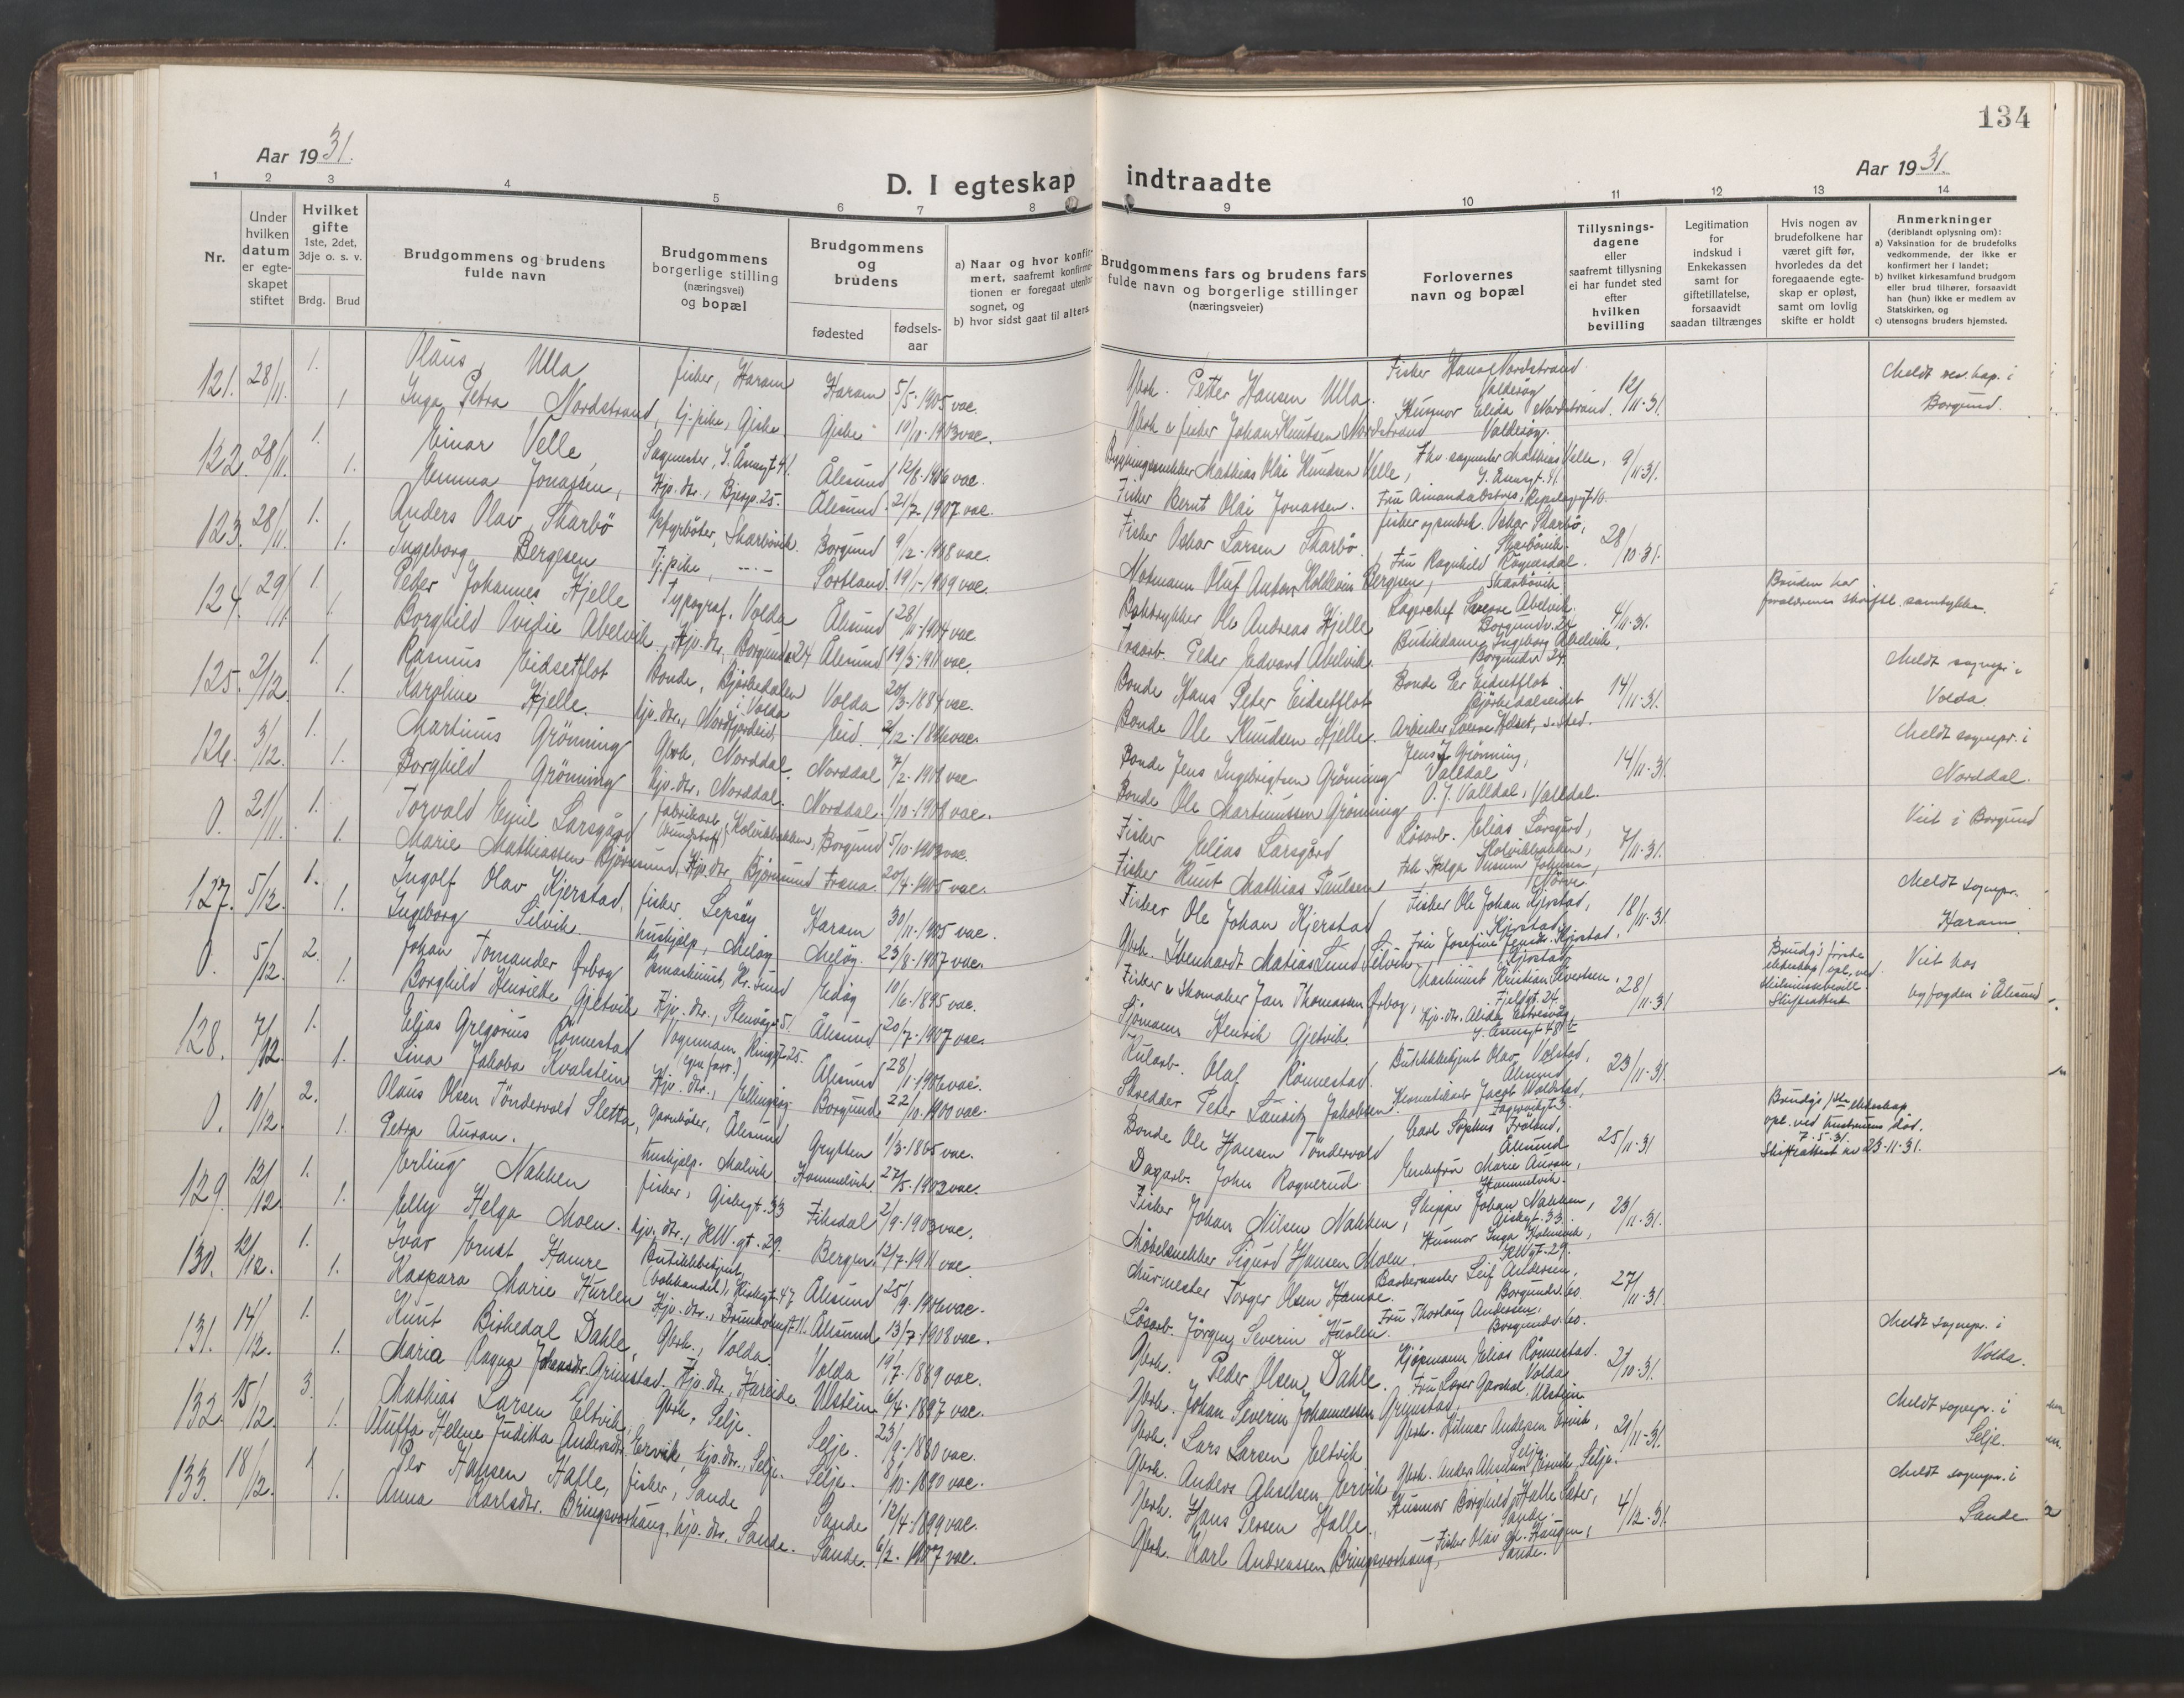 134
Aar 1931.
Aar 1931.
D. I egteskap indtraadte
1 2 3 4 5 6 7 8 9 10 11 12 13 14
Nr.
Under hvilken datum er egte-skapet stiftet
Hvilket gifte 1ste, 2det, 3dje o. s. v.
Brdg. Brud
Brudgommens og brudens fulde navn
Brudgommens borgerlige stilling (næringsvei) og bopæl
Brudgommens og brudens
fødested
fødsels-aar
a) Naar og hvor konfir-mert, saafremt konfirma-tionen er foregaat utenfor sognet, og
b) hvor sidst gaat til alters.
Brudgommens fars og brudens fars fulde navn og borgerlige stillinger (næringsveier)
Forlovernes navn og bopæl
Tillysnings-dagene eller saafremt tillysning ei har fundet sted efter hvilken bevilling
Legitimation for indskud i Enkekassen samt for giftetillatelse, forsaavidt saadan tiltrænges
Hvis nogen av brudefolkene har været gift før, hvorledes da det foregaaende egte-skap er opløst, samt om lovlig skifte er holdt
Anmerkninger (deriblandt oplysning om):
a) Vaksination for de brudefolks vedkommende, der ikke er konfirmert her i landet;
b) hvilket kirkesamfund brudgom eller brud tilhører, forsaavidt han (hun) ikke er medlem av Statskirken, og
c) utensogns bruders hjemsted.
121. 28/11. 1. Olaus Ulla fisker, Haram Haram 5/5-1905 vac. Gbrh. Petter Hansen Ulla. Fisker Hans Nordstrand Valderøy 12/11-31. Meldt res. kap. i Borgund.
1 Inga Petra Nordstrand, tj. pike, Giske Giske 10/10-1903 vac. Gbrh & fisker Johan Knutsen Nordstrand Husmor Elida Nordstrand. Valderøy.
122. 28/11. 1. Einar Velle, Sagmester, S. Åsegt. 41. Ålesund 12/8-1906 vac. Bygningssnekker Mathias Olai Knudsen Velle, Fhv. sagmester Mathias Velle, 9/11-31.
1. Emma Jonassen, Hjv. dtr., 25. Ålesund 21/7-1907 vac. Fisker Bernt Olai Jonassen. Fru Amanda
123. 28/11. 1. Anders Olav Skarbö Fyrböter, Skarbövik. Borgund 9/2-1908 vac. Fisker Oskar Larsen Skarbö. fisker og Oskar Skarbö, Skarbövik. 28/10-31.
1. Ingeborg Bergesen tj. pike, -"- Sortland 19/1-1909 vac. Notmann Oluf Anton Bergesen, Fru Ragnhild Skarbövik
124. 29/11. 1. Peder Johannes Hjelle Typograf, Volda Ålesund 28/11-1904 vac Boktrykker Ole Andreas Hjelle Lagerchef Sverre Abelvik. Borgundv. 24. 4/11-31. Bruden har foreldrenes skriftl. samtykke.
1. Borghild Ovidie Abelvik, Hjv. dtr., Borgundv. 24 Ålesund 19/3-1911 vac. Peder Edvard Abelvik. Butikdame Ingeborg Abelvik, Borgundv. 24.
125. 2/12. 1. Rasmus Eidsetflot Bonde, Bjørkedalen i Volda Volda 20/3-1884 vac. Bonde Hans Peter Eidsetflot Bonde Per Eidsetflot 14/11-31. Meldt sognepr. i Volda.
1. Karoline Hjelle. hjv. dtr., Nordfjordeid Eid. /2-1886 vac. Bonde Ole Knudsen Hjelle. Arbeider
126. 3/12. 1. Martinus Grönning Gbrh, Norddal. Norddal 7/2-1908 vac Bonde Jens Ingebrigtsen Grönning Jens J. Grønning, Valldal 14/11-31. Meldt sognepr. i Norddal.
1. Borghild Grönning hjv. dtr., Norddal. Norddal. 1/10-1908 vac. Bonde Ole Martinussen Grönning O. J. Valldal, Valldal.
0. 21/11. 1. Torvald Emil Larsgård fabrikarb., Kolvikbakken, Borgund 5/10-1903 vac. Fisker Elias Larsgård Løsarb. Elias Larsgård, Kolvikbakken, 7/11-31. Viet i Borgund
1. Marie Mathiassen Björnsund, Hjv. dtr, Björnsund Fræna. 20/4-1905 vac. Fisker Knut Mathias Paulsen, Frk Helga Johnsen,
127. 5/12. 1. Ingolf Olav Kjerstad, fisker, Lepsöy Haram 30/11-1905 vac. Fisker Ole Johan Kjerstad, Fisker Ole Johan Kjerstad, Kjerstad 18/11-31. Meldt sognepr. Haram
1. Ingeborg Selvik hushjelp, Meløy Meløy. 23/8-1907 vac. Gbrh. Ibenhardt Matias Lund Selvik. Fru Josefine Kjerstad, Kjerstad
0. 5/12. 2. Johan Tomander Ørbog maskinist, Kr. sund Edøy 10/6-1895 vac. Fisker & skomaker Jan Thomassen Ørbog, Maskinist Kristian Sivertsen, 28/11-31 Brudg's første ekteskap opl. ved Skilsmissebevill. Skifteattest Viet hos byfogden i Ålesund
1. Borghild Henriette Gjetvik Hjv. dtr., 51. Ålesund 20/7-1907 vac. Sjømann Henrik Gjetvik. hjv. dtr. Alida
128. 7/12. 1. Elias Gregorius Rönnestad Vognmann, 25. Ålesund 28/1-1906 vac. Kularb. Olaf Rönnestad. Butikkbetjent Olav Velstad, Ålesund 23/11-31.
1. Lina Jakoba Kvalstein hjv. dtr., Ellingsøy Borgund 22/10-1900 vac. Skredder Peder Lauritz Jakobsen. Jacob Valstad,
0. 10/12. 2. Olaus Olsen Töndervold Sletta, Garnbøter, Ålesund Grytten 1/3-1865 vac. Bonde Ole Hansen Töndervold Carl Sophus Fröland, Ålesund 25/11-31 Brudg's 1ste ekteskap opl. ved hustruens död. 7-5-31. Skifteattest av 23-11-31.
1. Petra Auran. hushjelp. Malvik. Hommelvik. 27/5-1902 vac. Dagarb. John Rognerud Enkefru Marie Auran, Hommelvik.
129. 12/12. 1. Erling Nakken fisker, Giskegt. 33 Fiksdal 2/9-1903 vac. Fisker Johan Nilsen Nakken, Skipper Johan Nakken, Giskegt. 33. 23/11-31.
1. Elly Helga Moen. hjv. dtr., K.W. gt. 29. Bergen. 12/7-1911 vac Möbelsnekker Sigurd Hansen Moen. Husmor Inga Holmvik, K.W.gt. 29.
130. 12/12. 1. Ivar Ernst Hamre Butikkbetjent, Kirkegt. 47 Ålesund 25/9-1906 vac. Murmester Torger Olsen Hamre. Barbermester Leif Andersen, Borgundv. 60. 27/11-31.
1. Kaspara Marie Hurlen Hjv. dtr., 11. Ålesund 13/7-1908 vac. Løsarb. Jörgen Severin Hurlen. Fru Thorlaug Andersen, Borgundv. 60.
131. 14/12. 1. Knut Birkedal Dahle, Gbrh., Volda. Volda 19/7-1889 vac. Gbrh. Peder Olsen Dahle. Kjøpmann Elias Rönnestad. Volda 21/10-31. Meldt sognepr. i Volda.
1. Maria Ragna Johansdtr. Grimstad. Hjv. dtr., Hareide. Ulstein 6/4-1897 vac. Gbrh. Johan Severin Johannessen Grimstad. Fru Ulstein
132. 15/12. 3. Mathias Larsen Eltvik, Gbrh, Selje. Selje. 23/9-1880 vac. Gbrh. Lars Larsen Eltvik Gbrh. Hilmar Andersen Ervik, Selje. 21/11-31. Meldt sognepr. i Selje.
1. Oluffa Helene Juditta Andersdtr. Ervik, hjv. dtr., Selje. Selje. 8/10-1890 vac. Gbrh. Anders Akselsen Ervik Gbrh. Anders Akselsen Ervik, Selje.
133. 18/12. 1 Per Hansen Halle, fisker, Sande Sande 12/4-1899 vac. Gbrh. Hans Persen Halle. Husmor Borghild Halle Sæter, Sande. 4/12-31. Meldt sognepr. i Sande.
1. Anna Karlsdtr. Bringsvorhaug, hjv. dtr, Sande. Sande. 6/2-1907 vac. Gbrh. Karl Andreassen Bringsvorhaug, Fisker Olav Haugen, Sande.